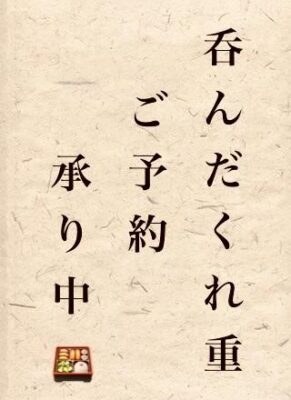 呑んだくれ重
ご予約
承り中